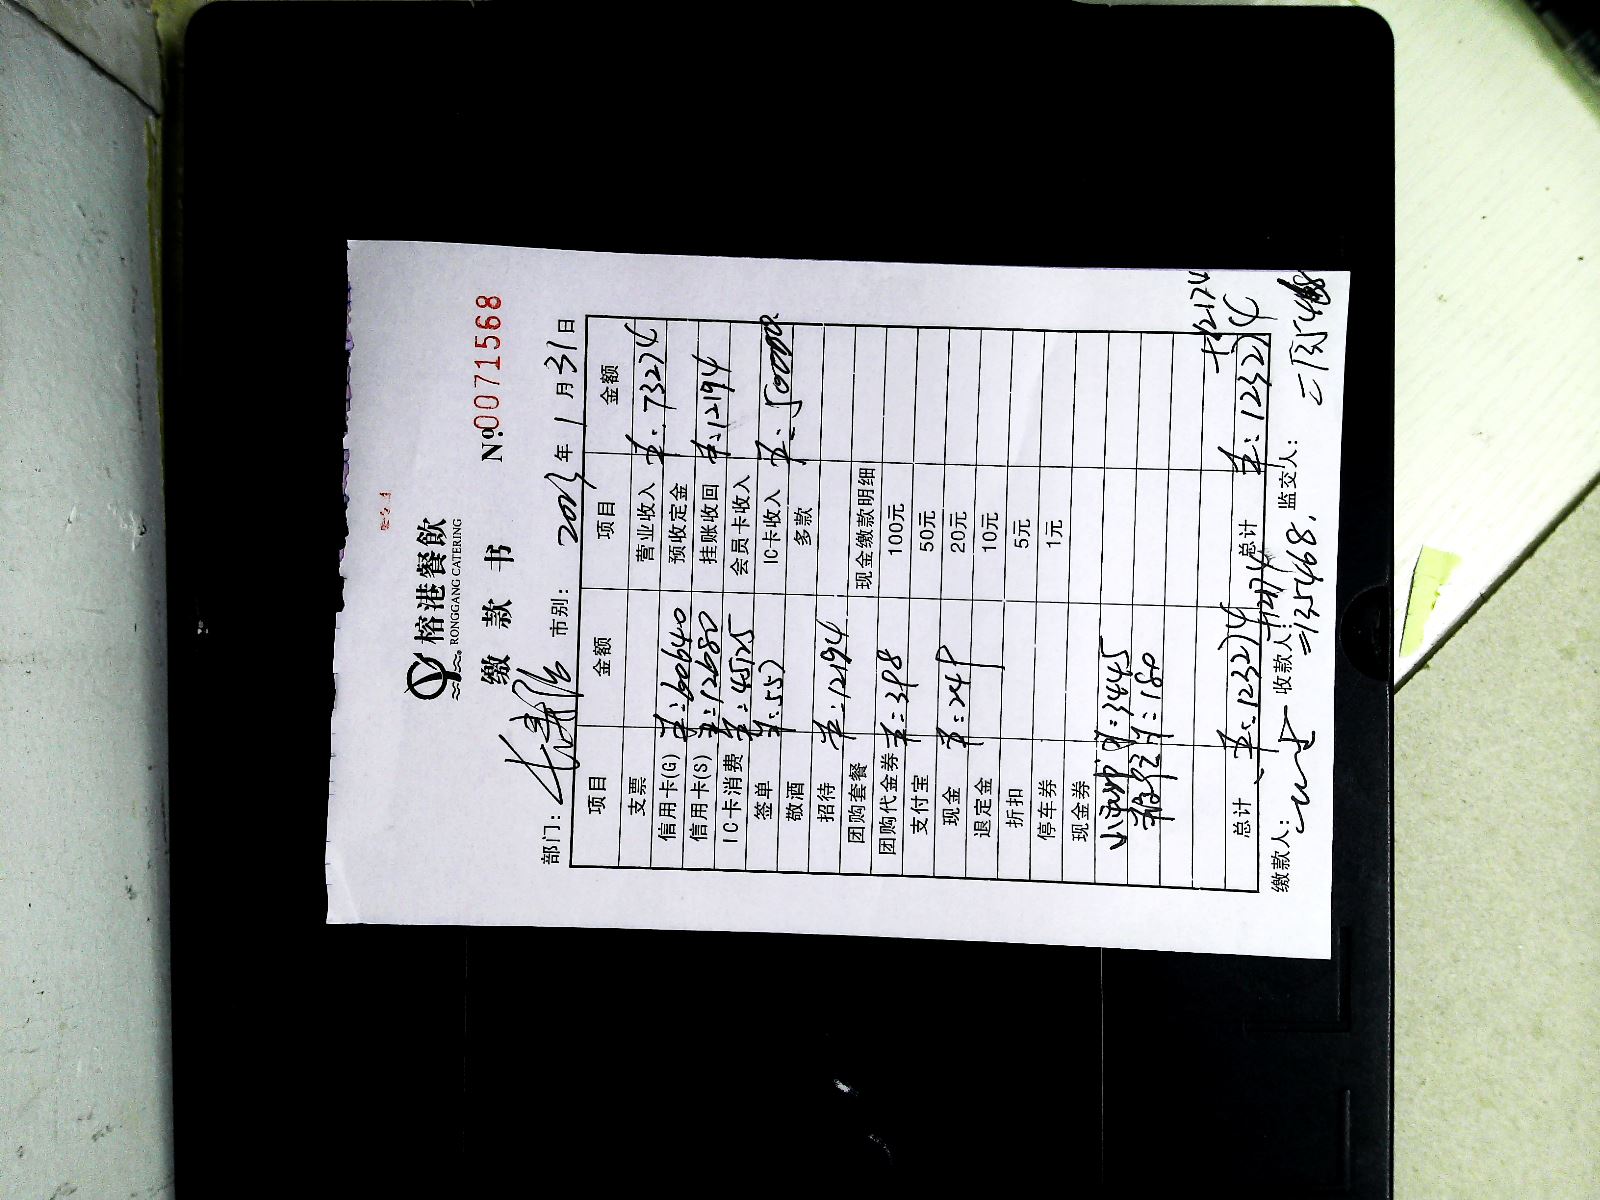 榕港餐飲
RONGGANG CATERING
缴 款 书
№0071568
部门: 市别: 年 1 月 31 日
项目 金额 项目 金额
支票 营业收入 73274
信用卡(G) 60640 预收定金
信用卡(S) 12680 挂账收回 12194
IC卡消费 45125 会员卡收入
签单 557 IC卡收入 50000.
敬酒 多款
招待 12194
团购套餐 现金缴款明细
团购代金券 398 100元
支付宝 50元
现金 20元
退定金 10元
折扣 5元
停车券 1元
现金券
3445
180
总计 123274 +12174 总计 123274
=135468. =135468
缴款人: 收款人: 监交人: